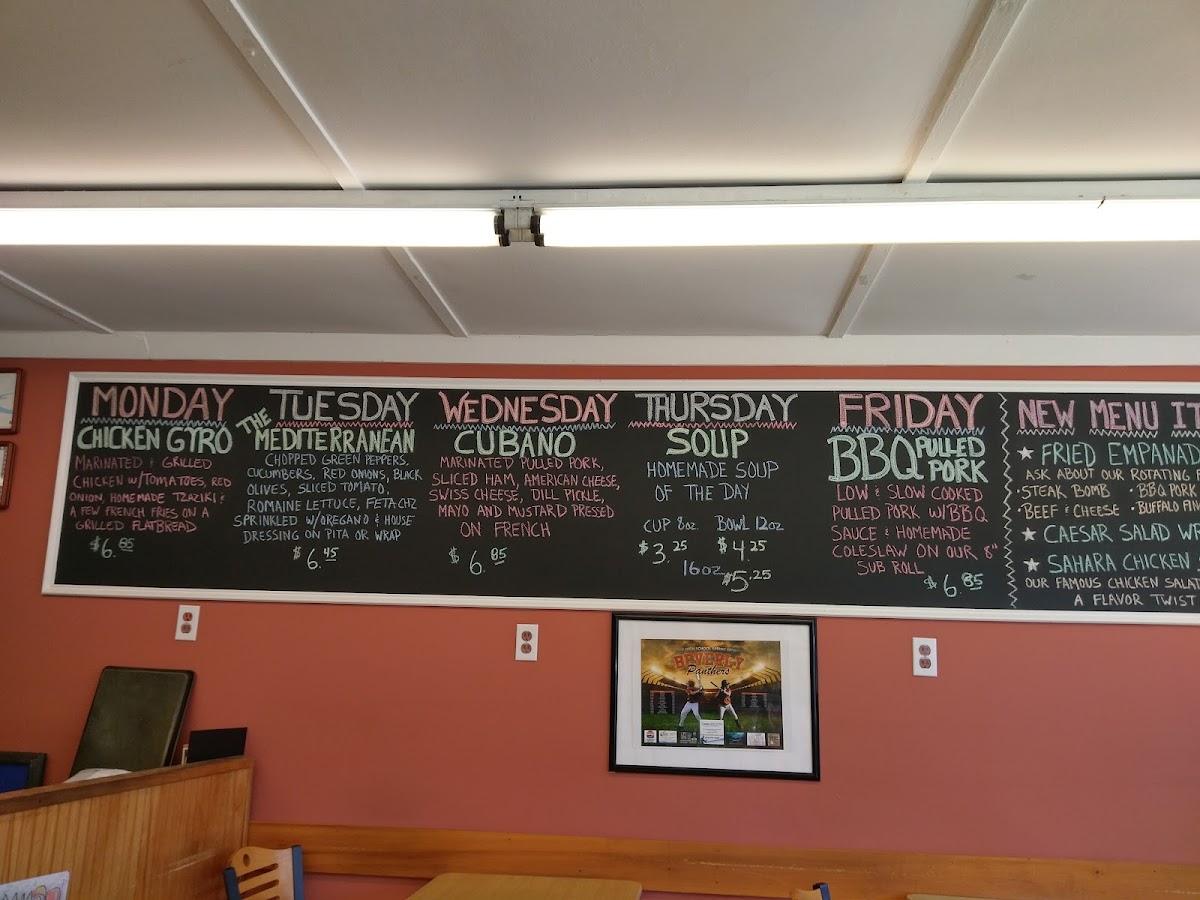 MONDAY
CHICKEN GYRO
MARINATED & GRILLED
CHICKEN W/TOMATOES, RED
ONION, HOMEMADE TZAZIKI &
A FEW FRENCH FRIES ON A
GRILLED FLATBREAD
$6.85
TUESDAY
THE
MEDITERRANEAN
CHOPPED GREEN PEPPERS,
CUCUMBERS, RED ONIONS, BLACK
OLIVES, SLICED TOMATO,
ROMAINE LETTUCE, FETA CHZ
SPRINKLED W/OREGANO & HOUSE
DRESSING ON PITA OR WRAP
$6.45
WEDNESDAY
CUBANO
MARINATED PULLED PORK,
SLICED HAM, AMERICAN CHEESE,
SWISS CHEESE, DILL PICKLE,
MAYO AND MUSTARD PRESSED
ON FRENCH
$6.85
THURSDAY
SOUP
HOMEMADE SOUP
OF THE DAY
CUP 8oz BOWL 12oz
$3.25 $4.25
16oz $5.25
FRIDAY
BBQ PULLED
PORK
LOW & SLOW COOKED
PULLED PORK W/BBQ
SAUCE & HOMEMADE
COLESLAW ON OUR 8"
SUB ROLL
$6.85
NEW MENU IT
★ FRIED EMPANAD
ASK ABOUT OUR ROTATING
• STEAK BOMB • BBQ PORK
• BEEF & CHEESE • BUFFALO FIN
★ CAESAR SALAD WR
★ SAHARA CHICKEN
OUR FAMOUS CHICKEN SALA
A FLAVOR TWIST
BEVERLY
Panthers